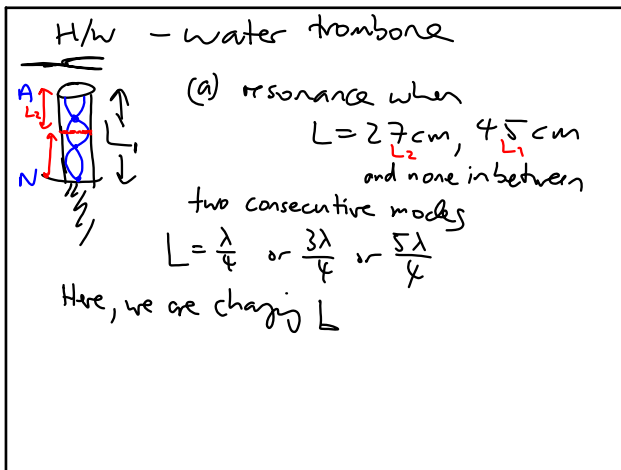 H/W - water trombone
(a) resonance when
L = 27 cm, 45 cm
L₂ L₁
and none in between
two consecutive modes
L = λ/4 or 3λ/4 or 5λ/4
Here, we are changing L
A
L₂
L₁
N